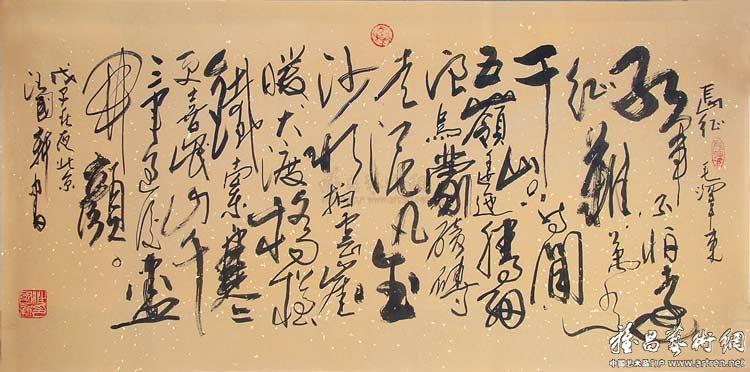 長征 毛澤東
紅軍不怕遠
征難萬水
千山只等閒
五嶺逶迤騰細
浪烏蒙磅礴
走泥丸金
沙水拍雲崖
暖大渡橋橫
鐵索寒
更喜岷山千
三軍過後盡
開顏
戊子 北京
雅昌藝術網
中国艺术品门户 www.artron.net